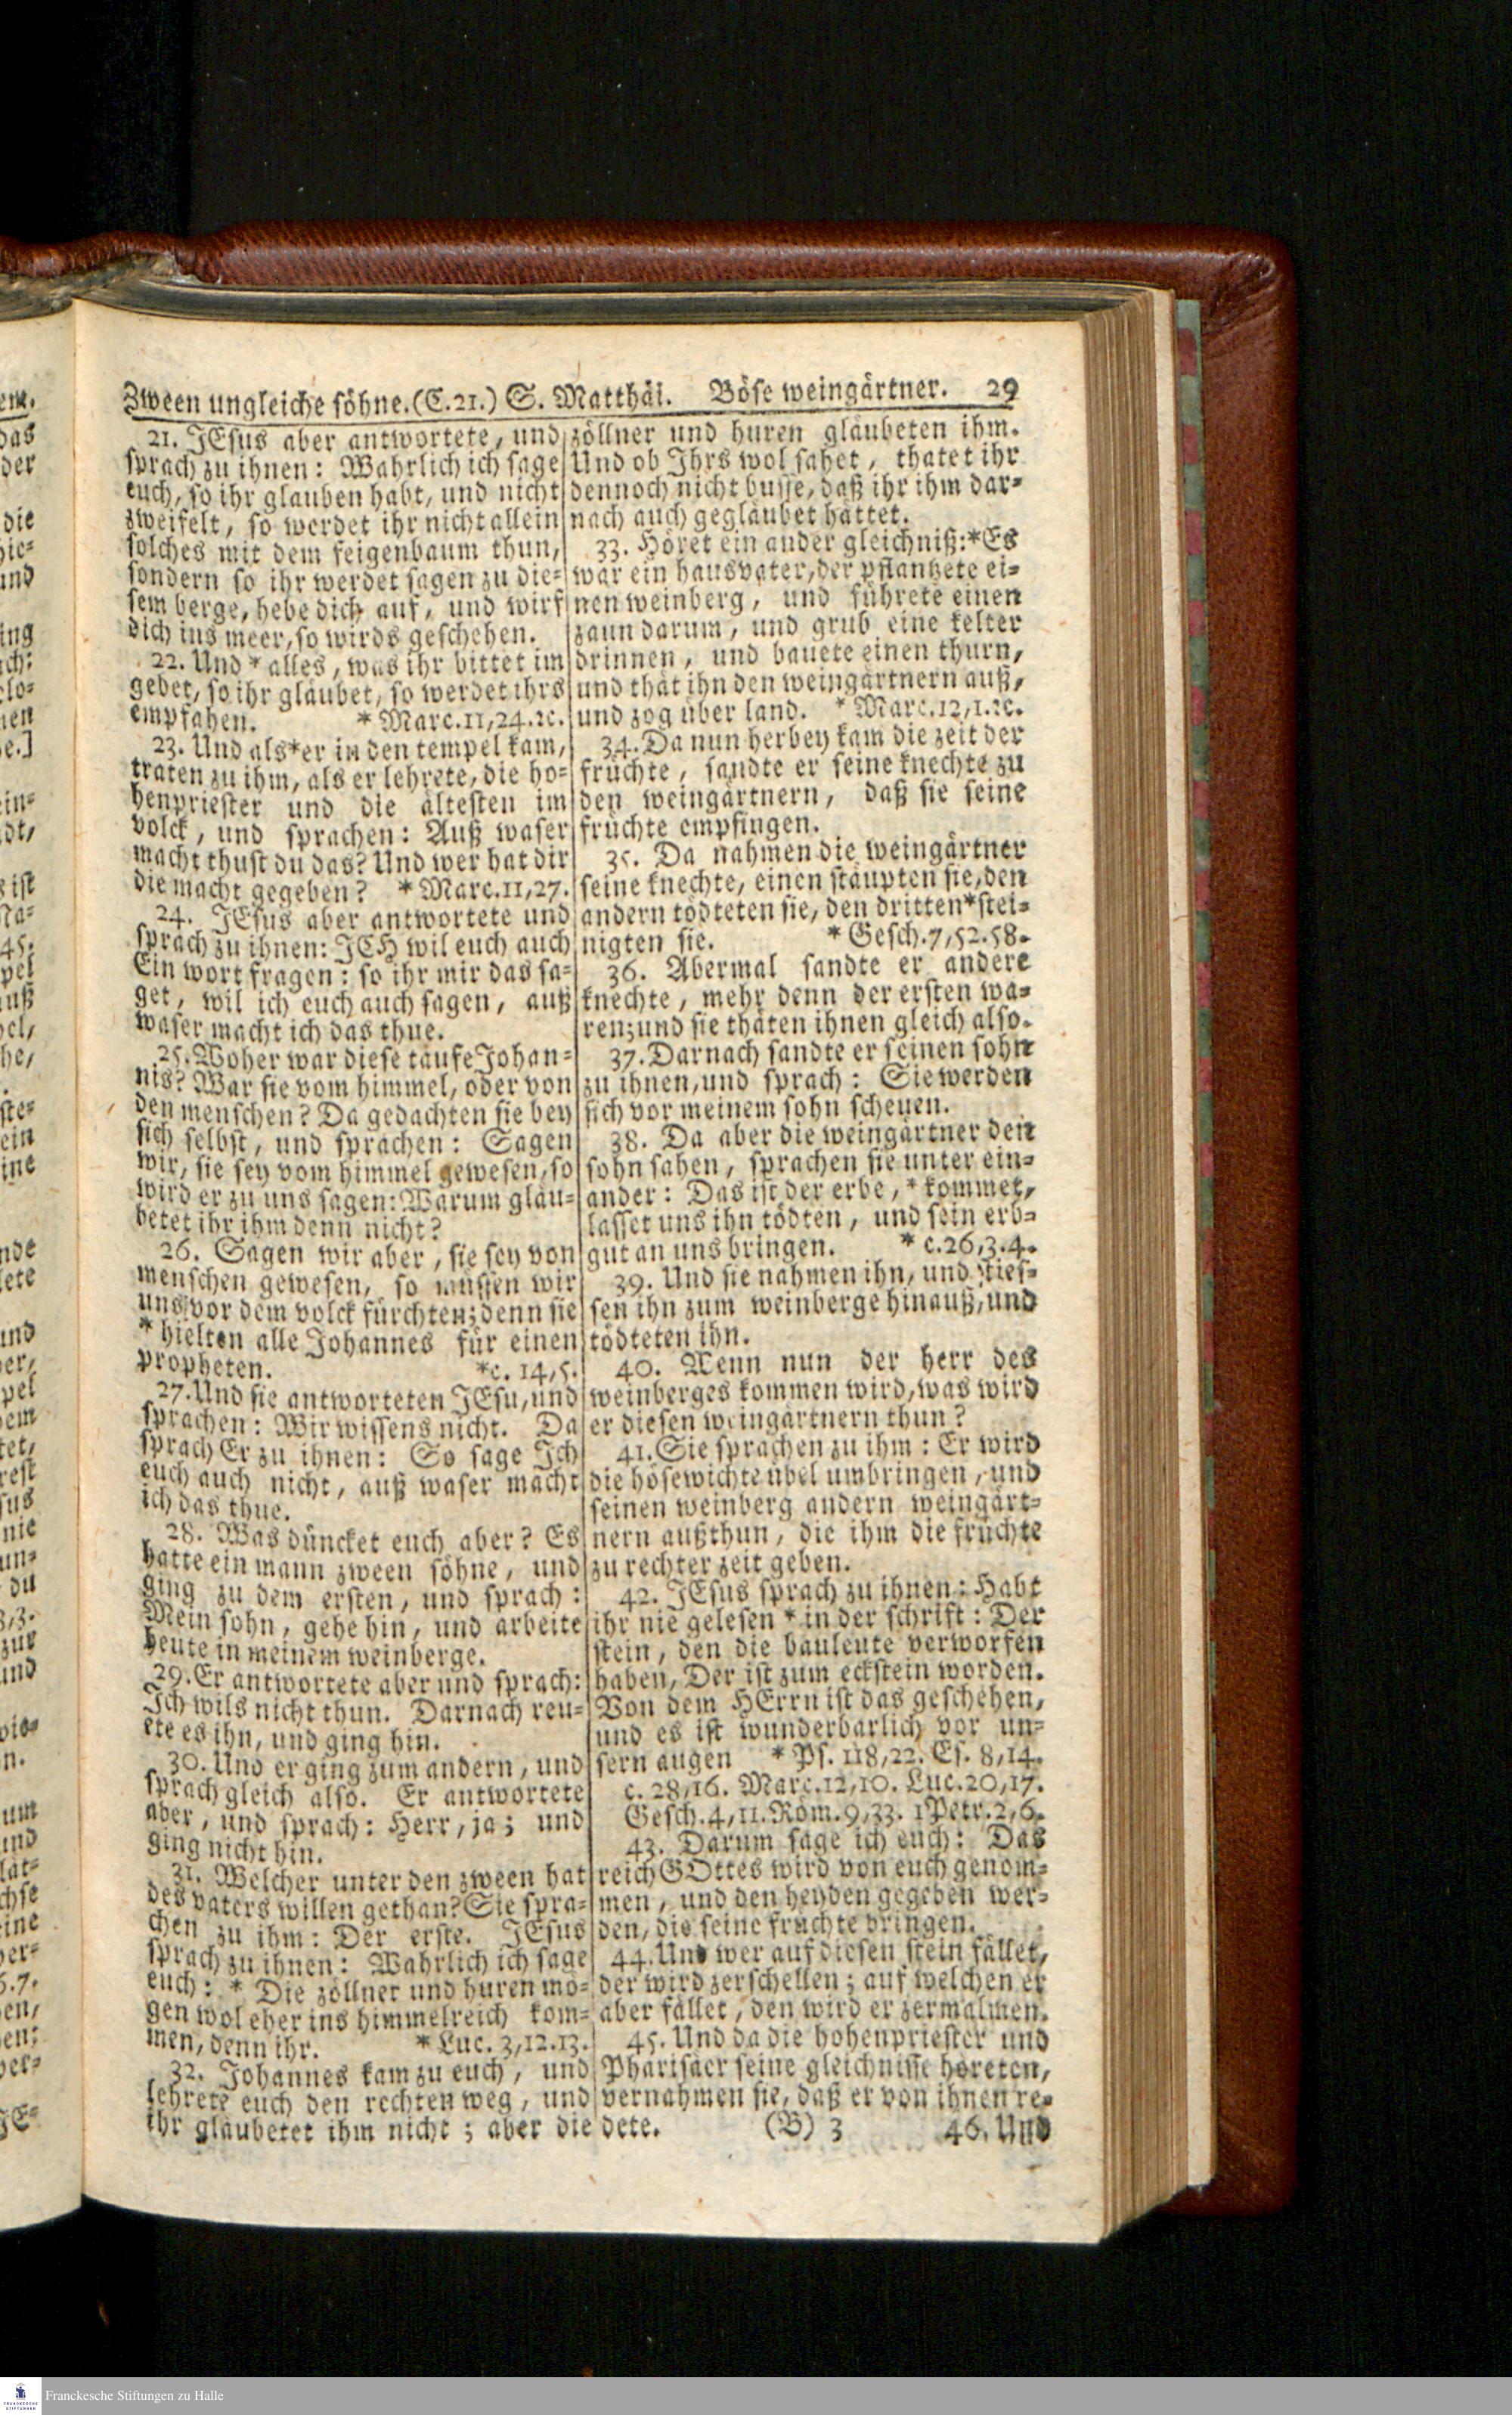 Zween ungleiche söhne. (C.21.) S. Matthäi. Böse weingärtner. 29
21. JEsus aber antwortete, und
sprach zu ihnen: Wahrlich ich sage
euch, so ihr glauben habt, und nicht
zweifelt, so werdet ihr nicht allein
solches mit dem feigenbaum thun,
sondern so ihr werdet sagen zu die-
sem berge, hebe dich auf, und wirf
dich ins meer, so wirds geschehen.
22. Und * alles, was ihr bittet im
gebet, so ihr gläubet, so werdet ihrs
empfahen. * Marc.11,24.2c.
23. Und als*er in den tempel kam,
traten zu ihm, als er lehrete, die ho-
henpriester und die ältesten im
volck, und sprachen: Auß waser
macht thust du das? Und wer hat dir
die macht gegeben? * Marc.11,27.
24. JEsus aber antwortete und
sprach zu ihnen: JCH wil euch auch
Ein wort fragen: so ihr mir das sa-
get, wil ich euch auch sagen, auß
waser macht ich das thue.
25. Woher war diese taufe Johan-
nis? War sie vom himmel, oder von
den menschen? Da gedachten sie bey
sich selbst, und sprachen: Sagen
wir, sie sey vom himmel gewesen, so
wird er zu uns sagen: Warum gläu-
betet ihr ihm denn nicht?
26. Sagen wir aber, sie sey von
menschen gewesen, so müssen wir
uns vor dem volck fürchten; denn sie
* hielten alle Johannes für einen
propheten. *c. 14,5.
27. Und sie antworteten JEsu, und
sprachen: Wir wissens nicht. Da
sprach Er zu ihnen: So sage Ich
euch auch nicht, auß waser macht
ich das thue.
28. Was düncket euch aber? Es
hatte ein mann zween söhne, und
ging zu dem ersten, und sprach:
Mein sohn, gehe hin, und arbeite
heute in meinem weinberge.
29. Er antwortete aber und sprach:
Ich wils nicht thun. Darnach reu-
ete es ihn, und ging hin.
30. Und er ging zum andern, und
sprach gleich also. Er antwortete
aber, und sprach: Herr, ja; und
ging nicht hin.
31. Welcher unter den zween hat
des vaters willen gethan? Sie spra-
chen zu ihm: Der erste. JEsus
sprach zu ihnen: Wahrlich ich sage
euch: * Die zöllner und huren mö-
gen wol eher ins himmelreich kom-
men, denn ihr. * Luc. 3,12.13.
32. Johannes kam zu euch, und
lehrete euch den rechten weg, und
ihr gläubetet ihm nicht; aber die
zöllner und huren gläubeten ihm.
Und ob Ihrs wol sahet, thatet ihr
dennoch nicht busse, daß ihr ihm dar-
nach auch gegläubet hättet.
33. Höret ein ander gleichniß: *Es
war ein hausvater, der pflantzete ei-
nen weinberg, und führete einen
zaun darum, und grub eine kelter
drinnen, und bauete einen thurn,
und thät ihn den weingärtnern auß,
und zog über land. * Marc.12,1.2c.
34. Da nun herbey kam die zeit der
früchte, sandte er seine knechte zu
den weingärtnern, daß sie seine
früchte empfingen.
35. Da nahmen die weingärtner
seine knechte, einen stäupten sie, den
andern tödteten sie, den dritten*stei-
nigten sie. * Gesch.7,52.58.
36. Abermal sandte er andere
knechte, mehr denn der ersten wa-
ren; und sie thäten ihnen gleich also.
37. Darnach sandte er seinen sohn
zu ihnen, und sprach: Sie werden
sich vor meinem sohn scheuen.
38. Da aber die weingärtner den
sohn sahen, sprachen sie unter ein-
ander: Das ist der erbe, * kommet,
lasset uns ihn tödten, und sein erb-
gut an uns bringen. * c.26,3.4.
39. Und sie nahmen ihn, und sties-
sen ihn zum weinberge hinauß, und
tödteten ihn.
40. Wenn nun der herr des
weinberges kommen wird, was wird
er diesen weingärtnern thun?
41. Sie sprachen zu ihm: Er wird
die bösewichte übel umbringen, und
seinen weinberg andern weingärt-
nern außthun, die ihm die früchte
zu rechter zeit geben.
42. JEsus sprach zu ihnen: Habt
ihr nie gelesen * in der schrift: Der
stein, den die bauleute verworfen
haben, Der ist zum eckstein worden.
Von dem HErrn ist das geschehen,
und es ist wunderbarlich vor un-
sern augen * Ps. 118,22. Es. 8,14.
c. 28,16. Marc.12,10. Luc.20,17.
Gesch.4,11. Röm.9,33. 1Petr.2,6.
43. Darum sage ich euch: Das
reich GOttes wird von euch genom-
men, und den heyden gegeben wer-
den, die seine früchte bringen.
44. Und wer auf diesen stein fället,
der wird zerschellen; auf welchen er
aber fället, den wird er zermalmen.
45. Und da die hohenpriester und
Pharisäer seine gleichnisse höreten,
vernahmen sie, daß er von ihnen re-
dete. (B) 3 46. Und
Franckesche Stiftungen zu Halle